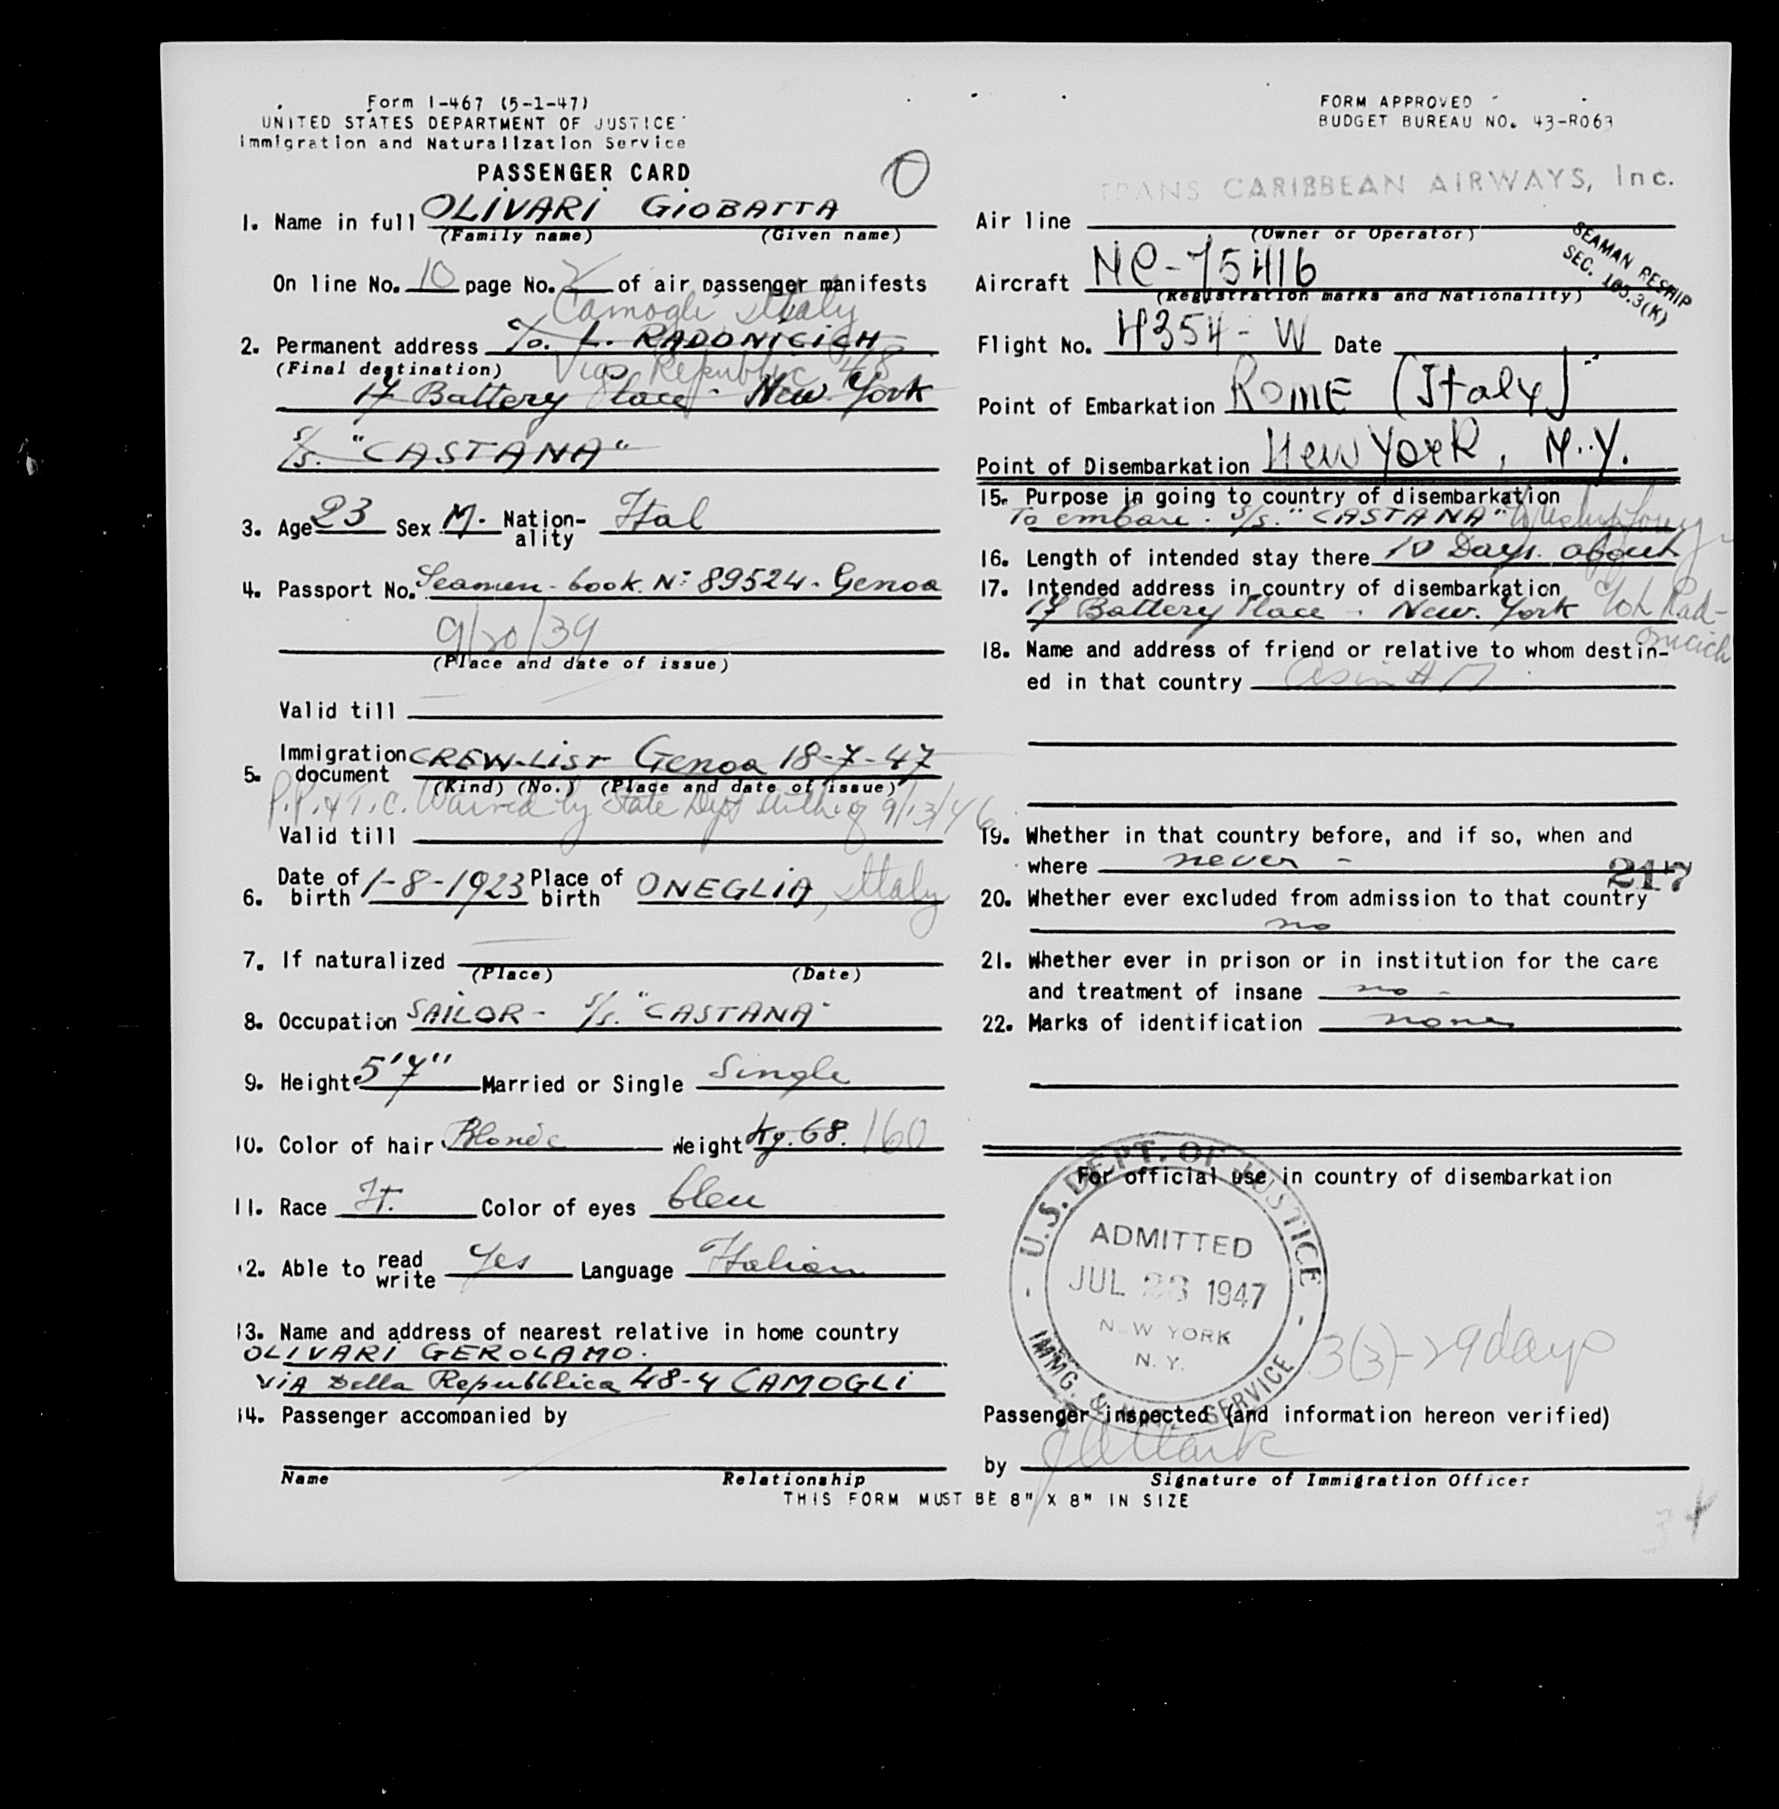 Form I-467 (5-1-47)
UNITED STATES DEPARTMENT OF JUSTICE
Immigration and Naturalization Service
PASSENGER CARD
O
1. Name in full OLIVARI GIOBATTA
(Family name) (Given name)
On line No. 10 page No. 2 of air passenger manifests
Camogli Italy
2. Permanent address c/o. L. RADONICICH
(Final destination) Via Republic 48
17 Battery Place - New York
S/s. "CASTANA"
3. Age 23 Sex M. Nationality Ital
4. Passport No. Seamen-book. N: 89524. Genoa
9/20/39
(Place and date of issue)
Valid till
5. Immigration document CREW-LIST Genoa 18-7-47
(Kind) (No.) (Place and date of issue)
P.P. & T.C. Waived by State Dept 9/13/46
Valid till
6. Date of birth 1-8-1923 Place of birth ONEGLIA, Italy
7. If naturalized
(Place) (Date)
8. Occupation SAILOR - S/s. "CASTANA"
9. Height 5'7" Married or Single Single
10. Color of hair Blonde Weight Kg. 68. 160
11. Race It. Color of eyes bleu
12. Able to read write Yes Language Italian
13. Name and address of nearest relative in home country
OLIVARI GEROLAMO.
ViA Della Repubblica 48-4 CAMOGLI
14. Passenger accompanied by
Name Relationship
FORM APPROVED
BUDGET BUREAU NO. 43-R063
TRANS CARIBBEAN AIRWAYS, Inc.
Air line
(Owner or Operator)
SEAMAN RESHIP
SEC. 105.3(K)
Aircraft NC-75416
(Registration marks and Nationality)
Flight No. 4354-W Date
Point of Embarkation ROME (Italy)
Point of Disembarkation New York, N.Y.
15. Purpose in going to country of disembarkation
To embarc. S/s. "CASTANA"
16. Length of intended stay there 10 Days. about
17. Intended address in country of disembarkation
17 Battery Place - New. York c/o L Radonicich
18. Name and address of friend or relative to whom destined in that country as in # 17
19. Whether in that country before, and if so, when and
where never -
217
20. Whether ever excluded from admission to that country
no
21. Whether ever in prison or in institution for the care
and treatment of insane no -
22. Marks of identification none
For official use in country of disembarkation
U.S. DEPT. OF JUSTICE
ADMITTED
JUL 23 1947
NEW YORK
N.Y.
IMMG. & NATZ. SERVICE
3(3)-29 days
Passenger inspected (and information hereon verified)
by
Signature of Immigration Officer
THIS FORM MUST BE 8" X 8" IN SIZE